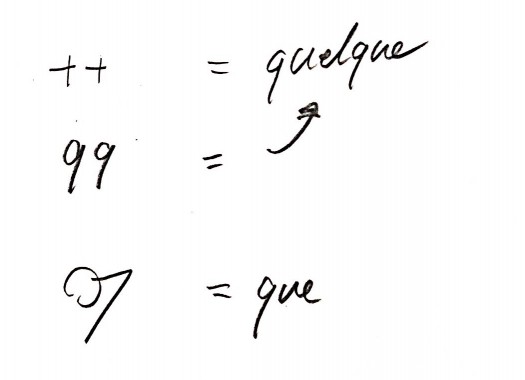 ++ = quelque
qq =
= que